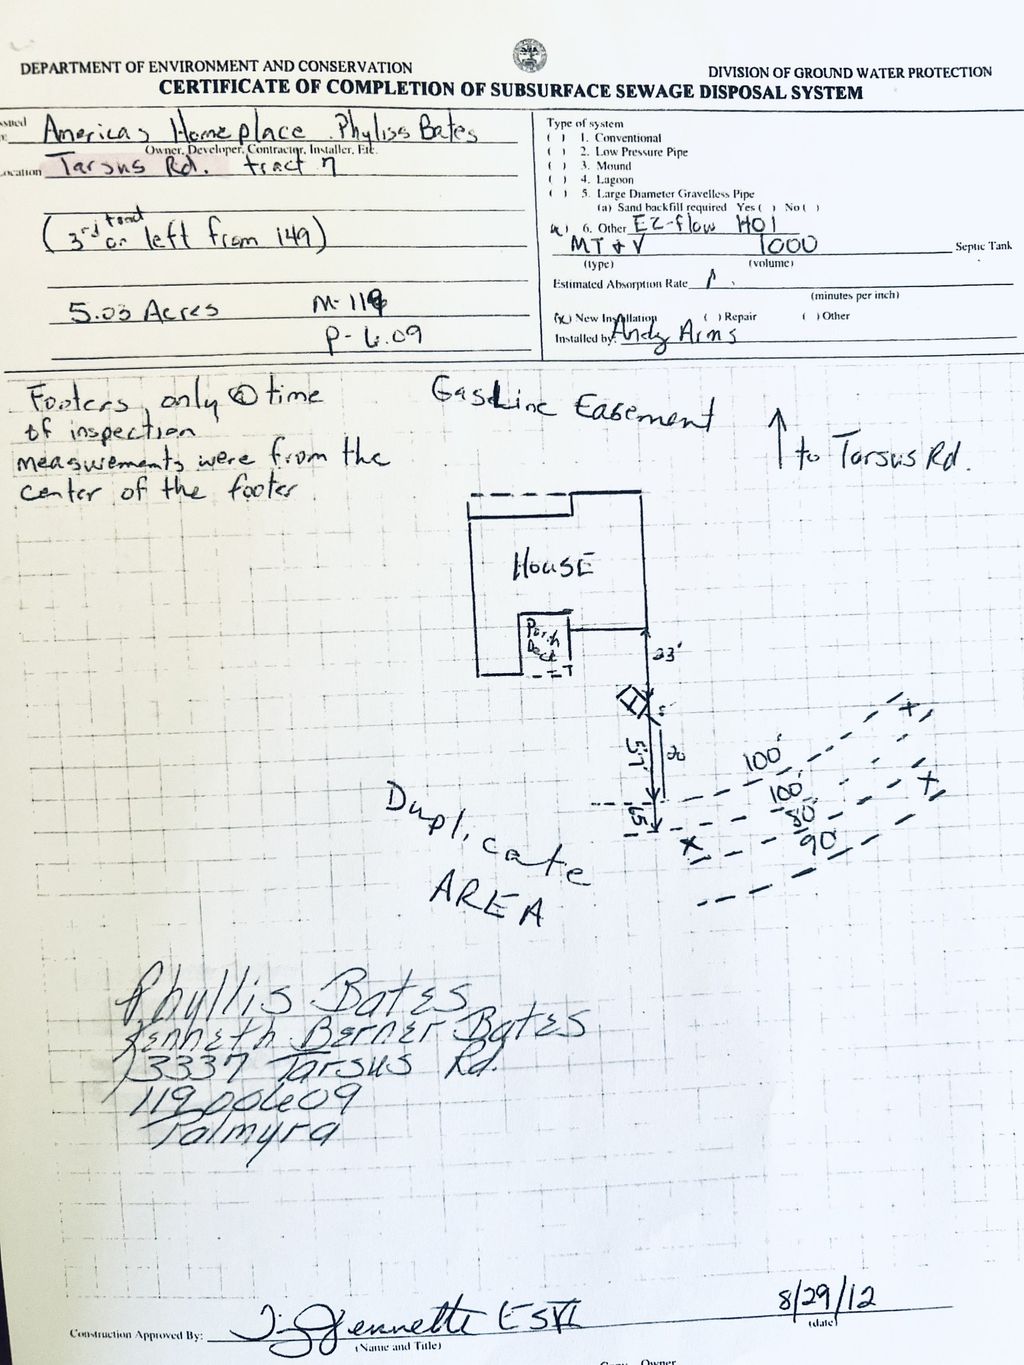 DEPARTMENT OF ENVIRONMENT AND CONSERVATION
DIVISION OF GROUND WATER PROTECTION
CERTIFICATE OF COMPLETION OF SUBSURFACE SEWAGE DISPOSAL SYSTEM
Americas Homeplace Phyliss Bates
Owner, Developer, Contractor, Installer, Etc.
Location Tarsus Rd. tract 7
(3rd tract on left from 149)
5.03 Acres M-119
P-6.09
Type of system
( ) 1. Conventional
( ) 2. Low Pressure Pipe
( ) 3. Mound
( ) 4. Lagoon
( ) 5. Large Diameter Gravelless Pipe
(a) Sand backfill required Yes ( ) No ( )
(x) 6. Other EZ-flow HO1
MT & V 1000 Septic Tank
(type) (volume)
Estimated Absorption Rate
(minutes per inch)
(x) New Installation ( ) Repair ( ) Other
Installed by: Andy Arms
Footers only @ time
of inspection
measurements were from the
center of the footer
Gas Line Easement
to Tarsus Rd.
HOUSE
Porch
Deck
23'
5'
57'
20
65
100'
100'
80'
90'
Duplicate
AREA
Phyllis Bates
Kenneth Berner Bates
3337 Tarsus Rd.
119 00609
Palmyra
Construction Approved By: Jennette ESVI 8/29/12
(Name and Title) (date)
Copy Owner